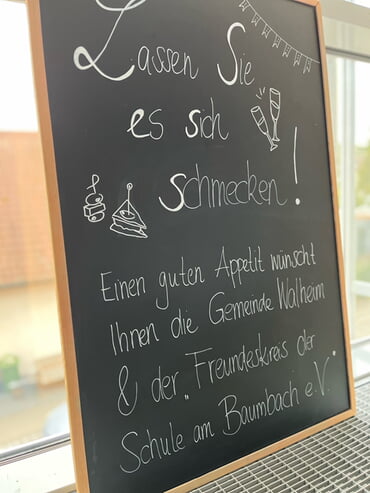 Lassen Sie
es sich
schmecken!
Einen guten Appetit wünscht
Ihnen die Gemeinde Walheim
& der „Freundeskreis der
Schule am Baumbach e.V."